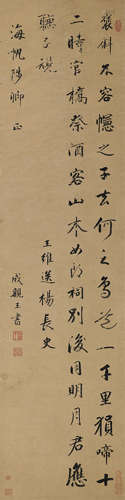 褒斜不容幰之子去何之鳥道一千里猿啼十
二時官橋祭酒客山木女郎祠別後同明月君應
聽子規
王維送楊長史
海帆 卿 正
成親王書